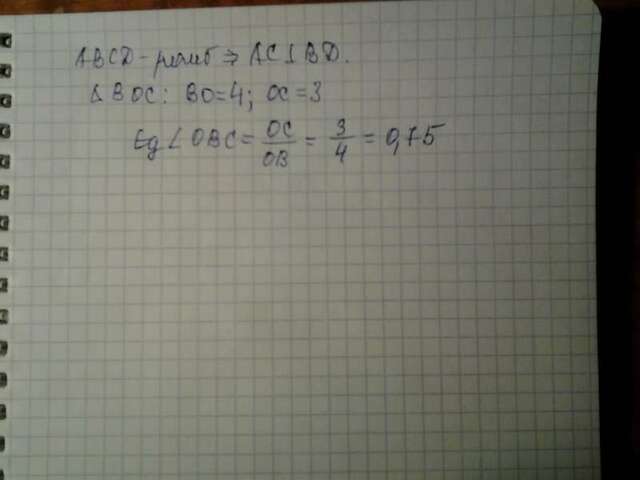 ABCD - ромб ⇒ AC ⊥ BD.
Δ BOC: BO=4; OC=3
tg ∠ OBC = OC/OB = 3/4 = 0,75